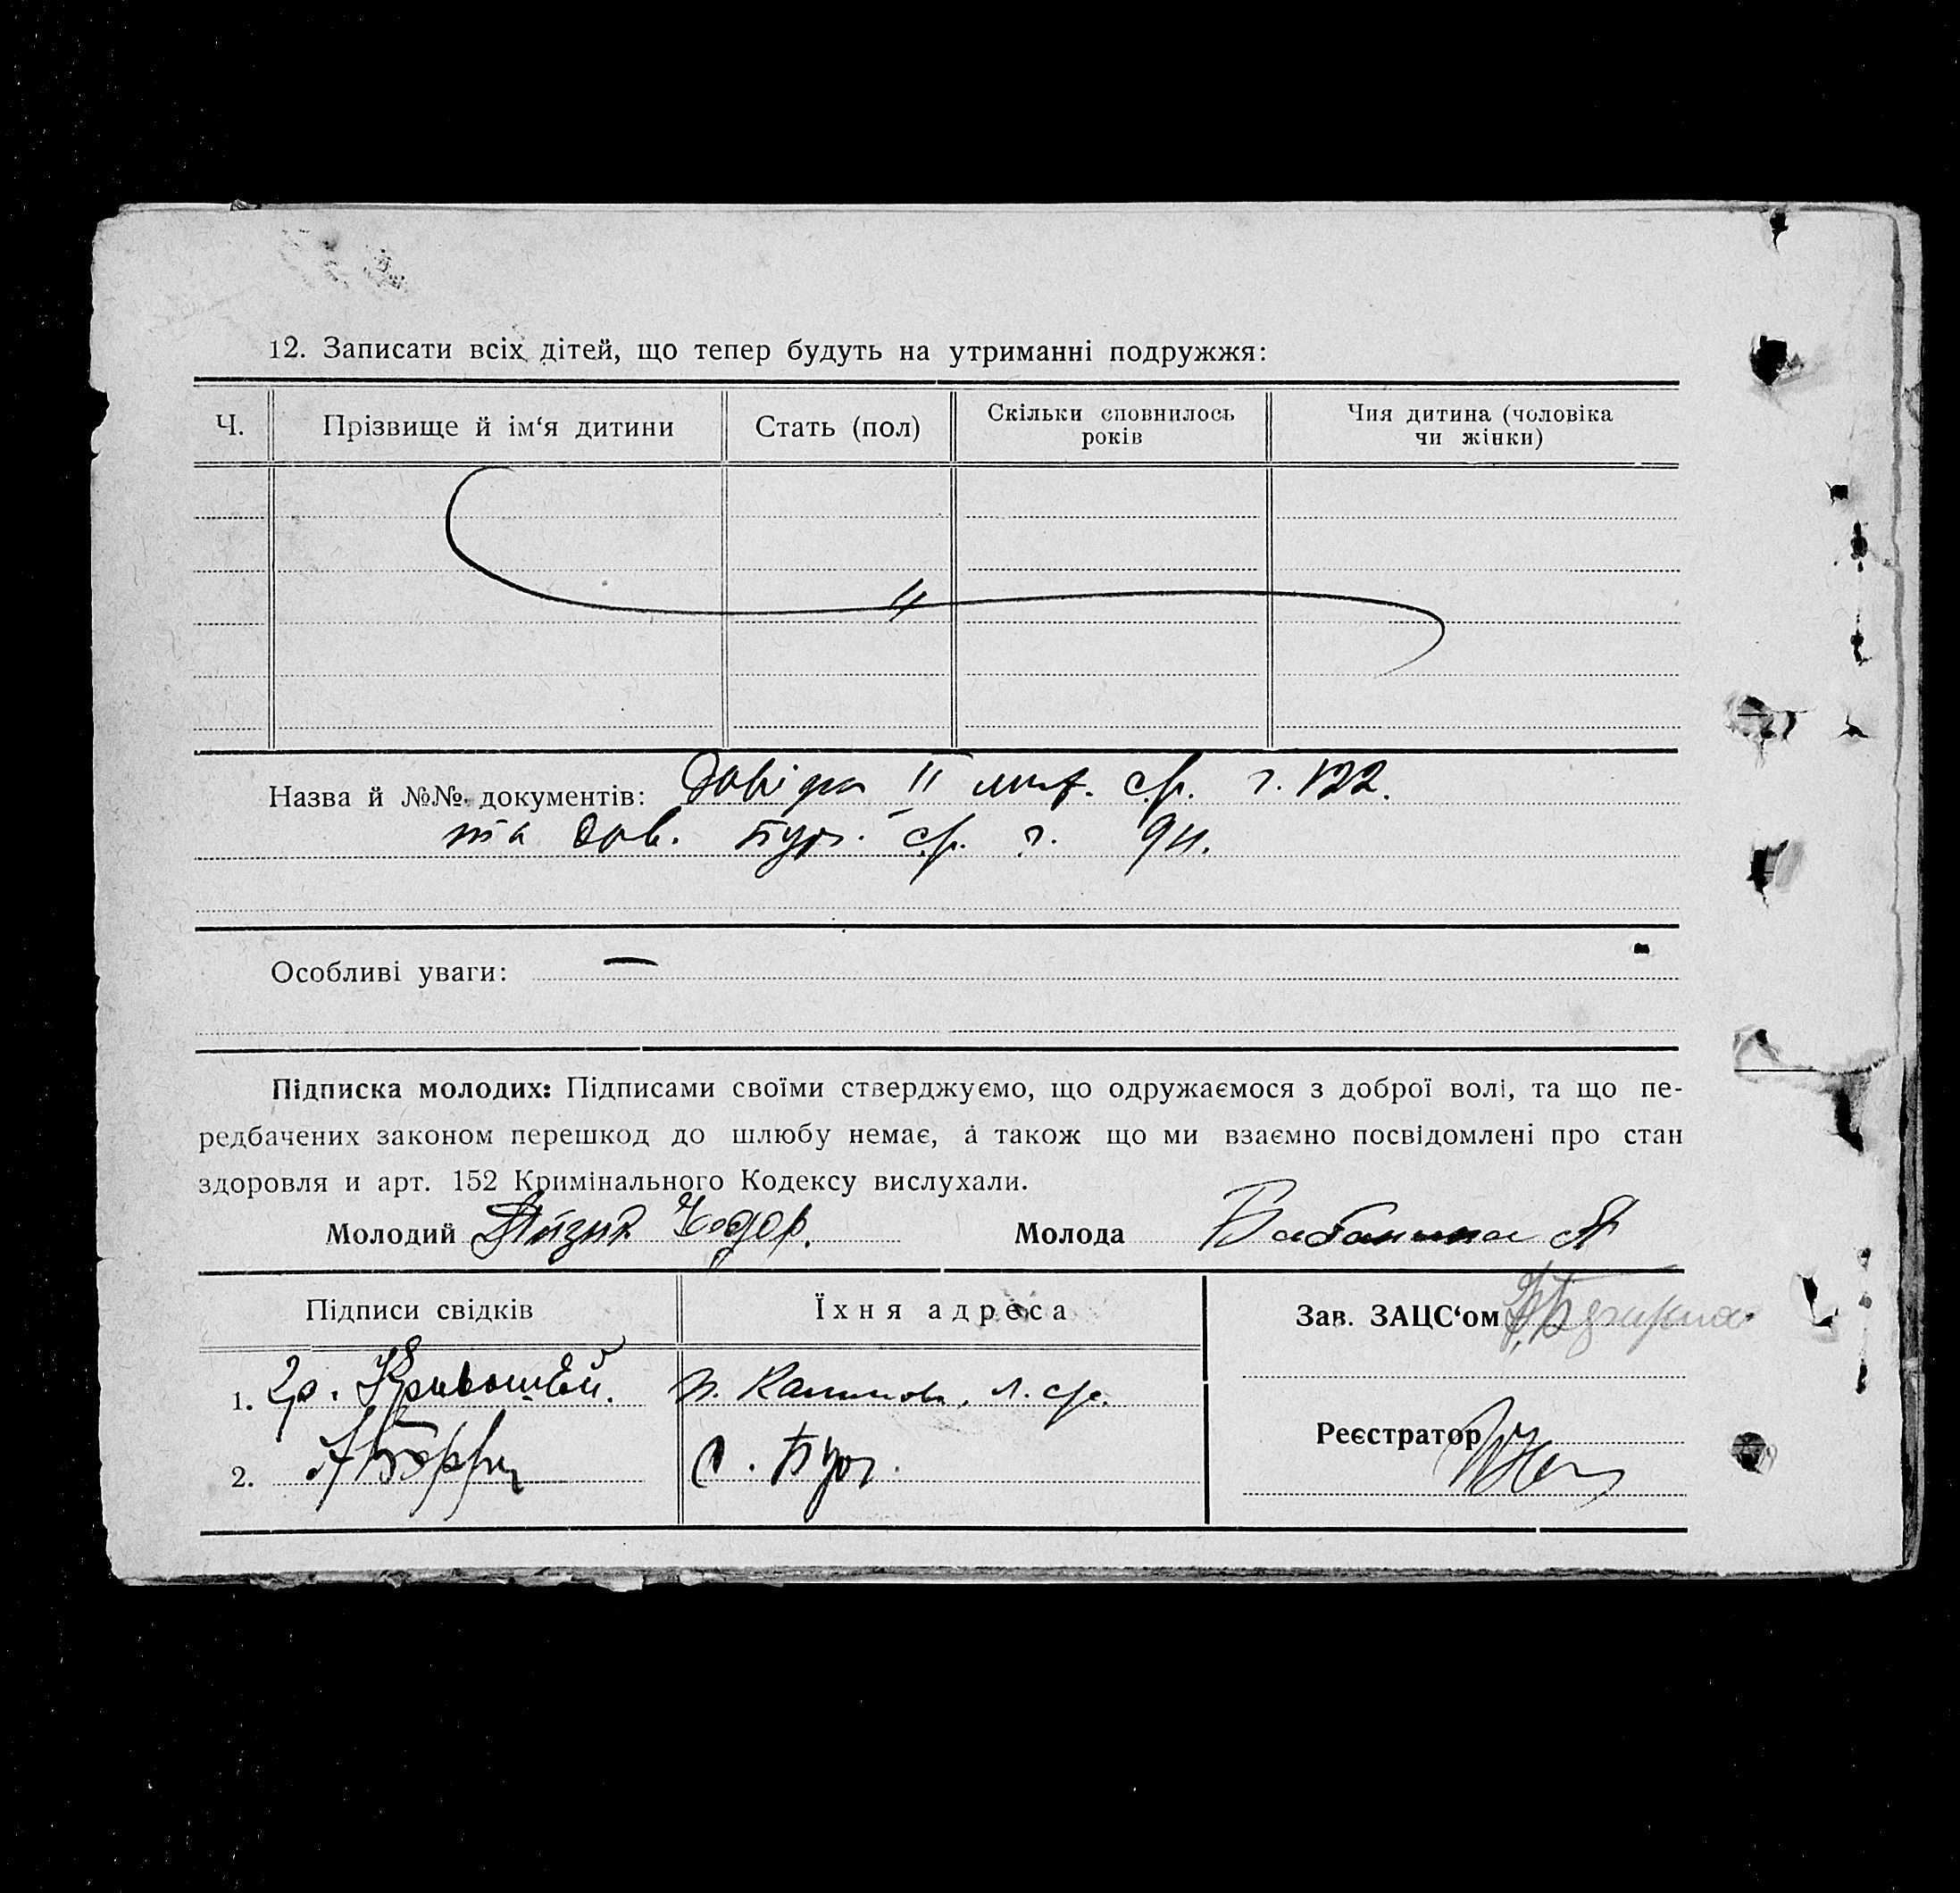 12. Записати всіх дітей, що тепер будуть на утриманні подружжя:
Ч. Прізвище й ім‘я дитини Стать (пол) Скільки сповнилось років Чия дитина (чоловіка чи жінки)
Назва й №№ документів: Довідка II с/р. ч. 122.
та дов. с/р. ч. 94.
Особливі уваги: —
Підписка молодих: Підписами своїми стверджуємо, що одружаємося з доброї волі, та що пе-
редбачених законом перешкод до шлюбу немає, а також що ми взаємно посвідомлені про стан
здоровля и арт. 152 Кримінального Кодексу вислухали.
Молодий Молода
Підписи свідків Їхня адреса Зав. ЗАЦС‘ом
1. гр.
Реєстратор
2. с.